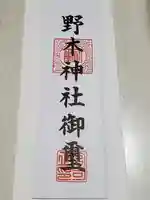 野本神社御璽